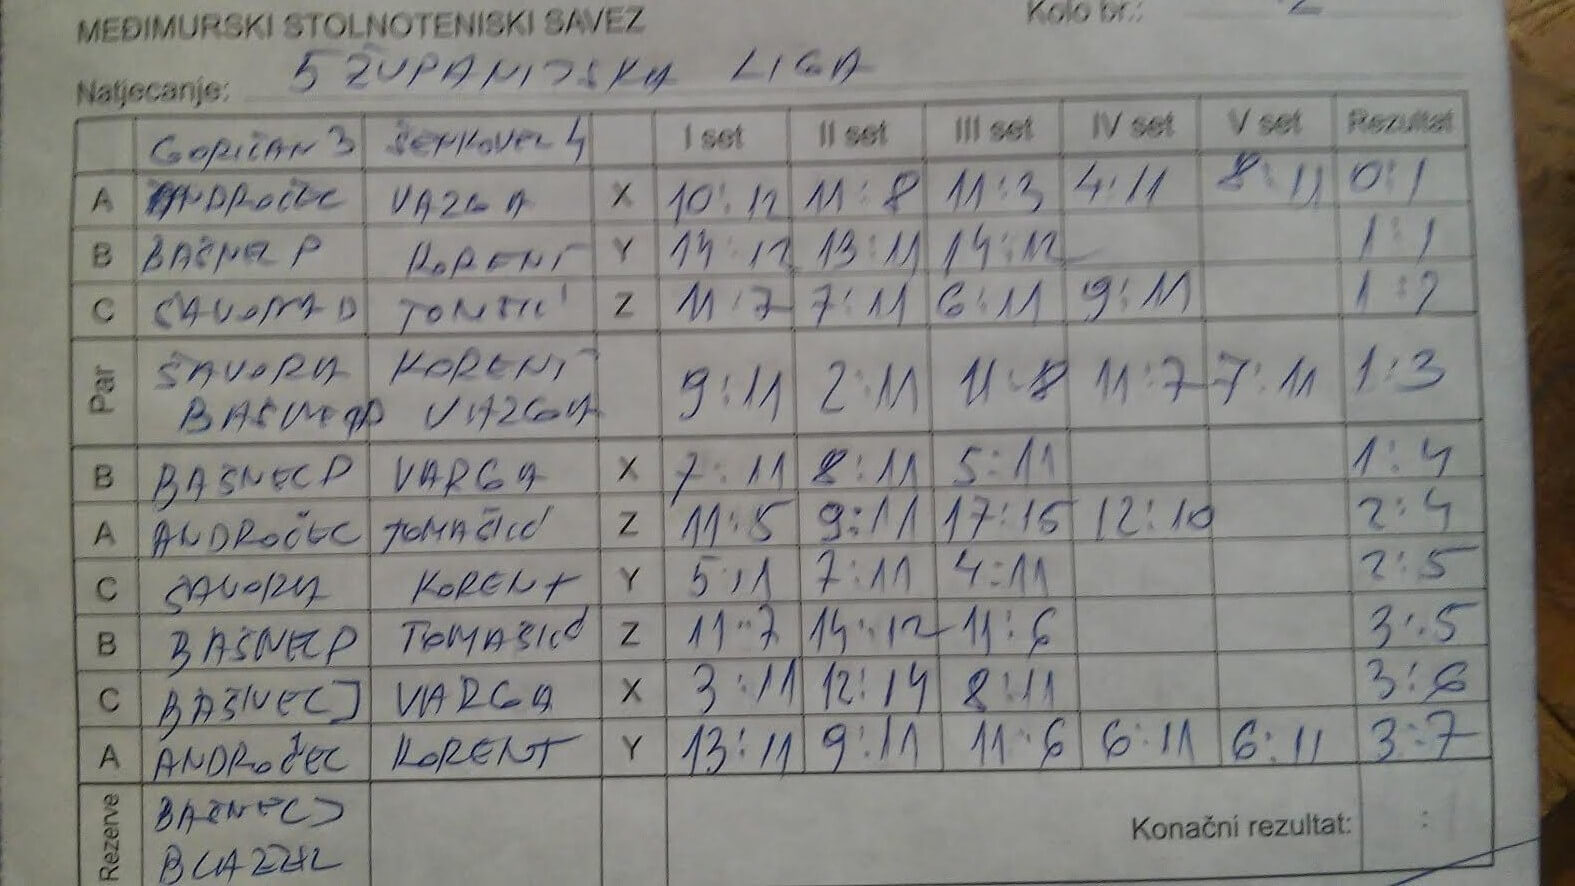 MEĐIMURSKI STOLNOTENISKI SAVEZ Kolo br.: 2
Natjecanje: 5 ŽUPANIJSKA LIGA
GORIČAN 3 ŠENKOVEC 4 I set II set III set IV set V set Rezultat
A ANDROČEC VARGA X 10:12 11:8 11:3 4:11 8:11 0:1
B BAŠNEC P KORENT Y 14:12 13:11 14:12 1:1
C ŠAVORA D Z 11:7 7:11 6:11 9:11 1:2
Par ŠAVORA KORENT 9:11 2:11 11:8 11:7 7:11 1:3
BAŠNEC P VARGA
B BAŠNEC P VARGA X 7:11 8:11 5:11 1:4
A ANDROČEC TOMAŠIĆ Z 11:5 9:11 17:15 12:10 2:4
C ŠAVORA KORENT Y 5:11 7:11 4:11 2:5
B BAŠNEC P TOMAŠIĆ Z 11:7 14:12 11:6 3:5
C BAŠNEC J VARGA X 3:11 12:14 8:11 3:6
A ANDROČEC KORENT Y 13:11 9:11 11:6 6:11 6:11 3:7
Rezerve BAŠNEC J Konačni rezultat: :